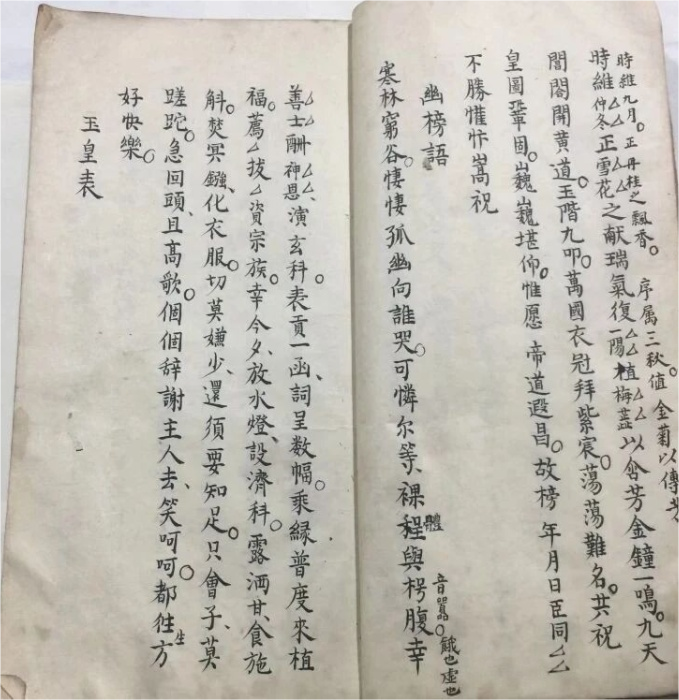 時維九月。正丹桂之飄香。序属三秋。值金菊以傳芳
時維仲冬△△正雪花△△之献瑞氣復一陽△△植梅蕋△△以含芳金鐘一鳴。九天
閶閤開黄道。玉階九叩。萬國衣冠拜紫宸。蕩蕩難名。共祝
皇圖鞏固。巍巍堪仰。惟愿 帝道遐昌。故榜 年月日臣同△△
不勝懽忭嵩祝
幽榜語
寒林窮谷。悽悽孤幽向誰哭。可憐尔等、裸程體與枵腹音嚣。餓也虛也幸
善△士△酬神△恩△、演玄科。表貢一函、詞呈数幅。乘緣普度來植
福。薦△拔△資宗族。幸今夕、放水燈、設濟科。露洒甘、食施
斛。焚冥鏹、化衣服。切莫嫌少、還須要知足。只會子、莫
蹉跎。急回頭、且高歌。個個辞謝主人去、笑呵呵。都往生方
好快樂。
玉皇表